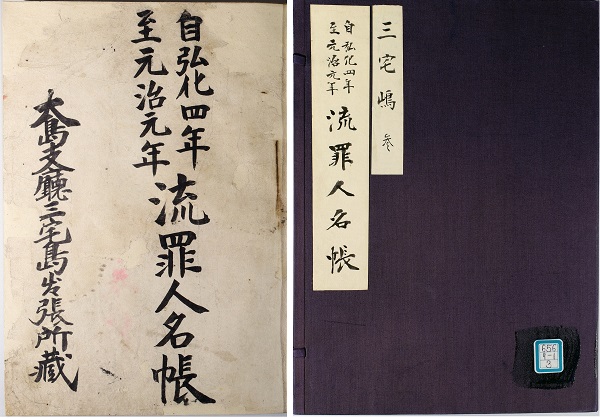 自弘化四年
至元治元年
流罪人名帳
大島支廳三宅島出張所藏
三宅嶋 参
自弘化四年
至元治元年
流罪人名帳
656